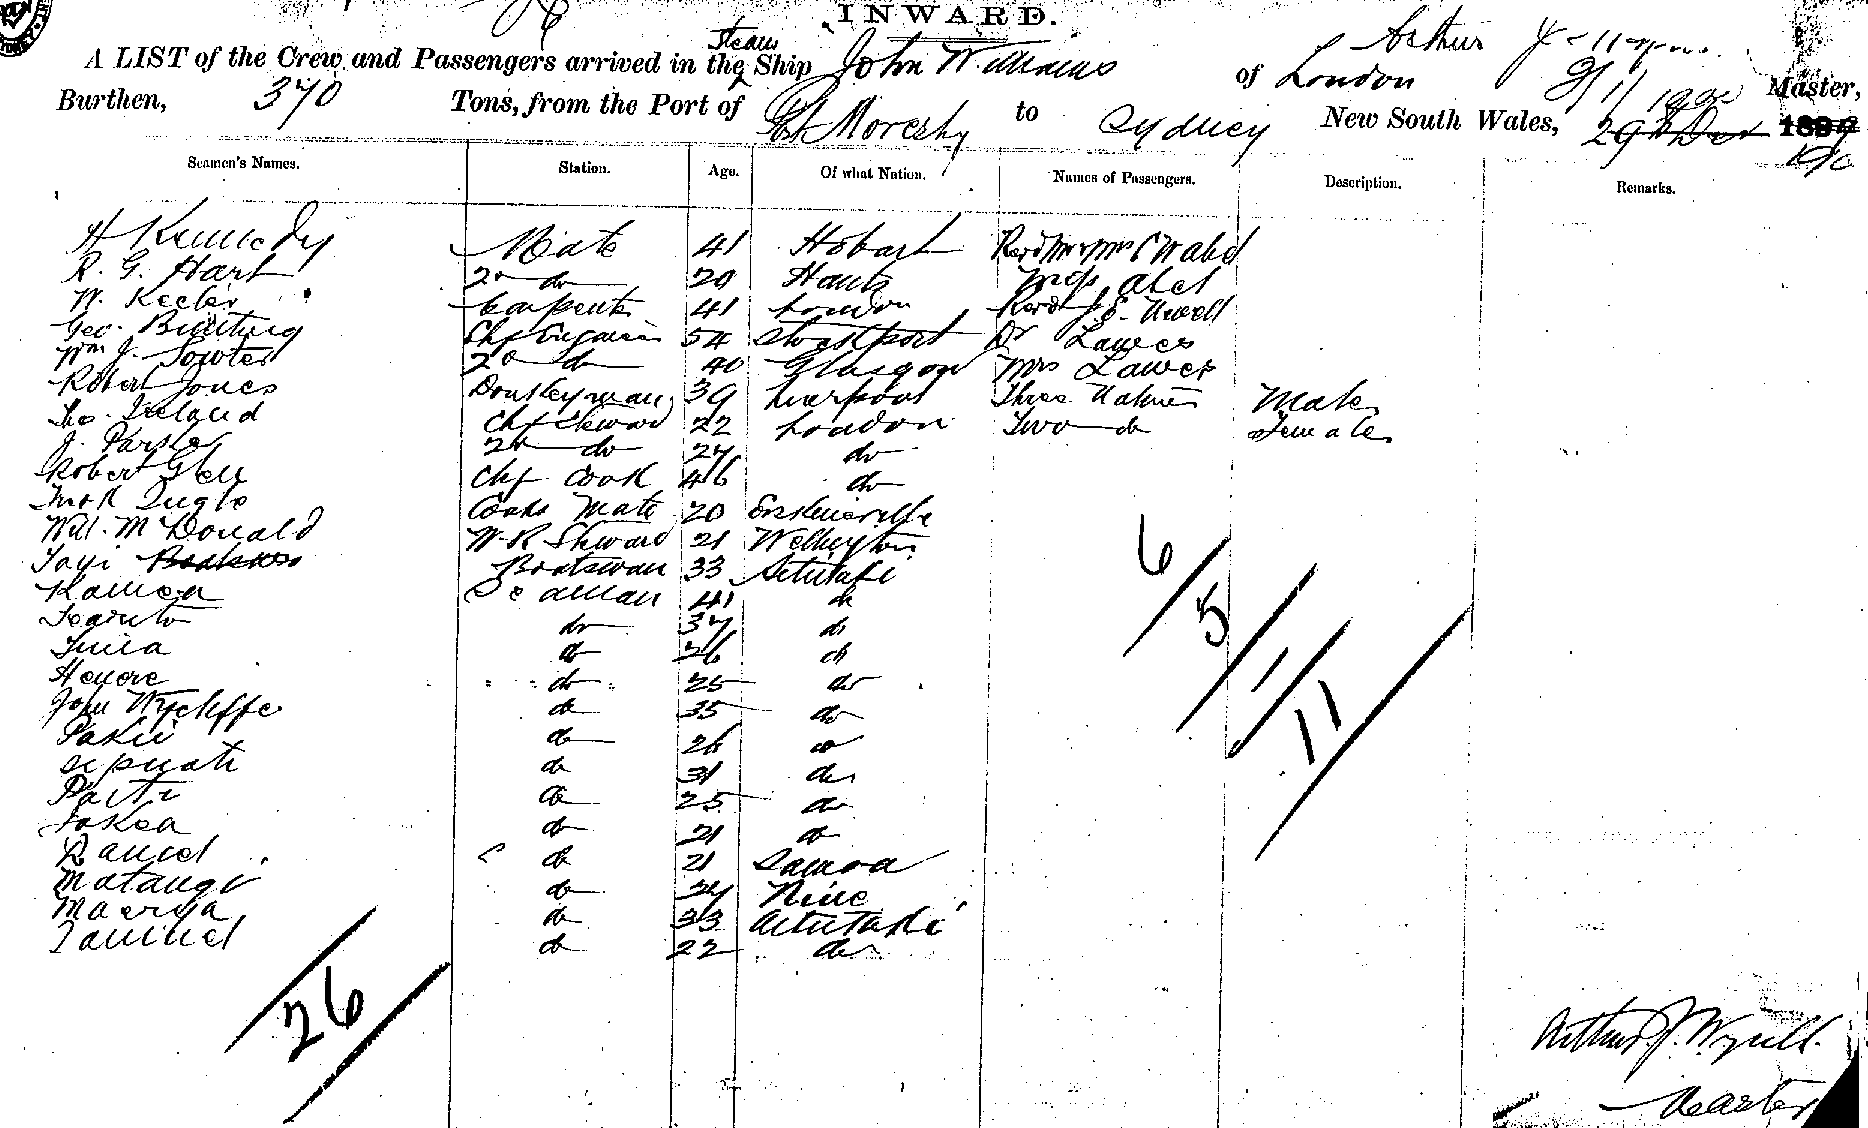 INWARD.
A LIST of the Crew and Passengers arrived in the Steam Ship John Williams of London Arthur J Master,
Burthen, 370 Tons, from the Port of Pt Moresby to Sydney New South Wales, 29th Dec 189
Seamen's Names. Station. Age. Of what Nation. Names of Passengers. Description. Remarks.
H Kennedy Mate 41 Hobart Revd Mr & Mrs C W Abel
R. G. Hart 2nd do 29 Hants Miss Abel
W. Keeler Carpenter 41 London Revd J. E. Newell
Geo. Bunting Chf Engineer 54 Stockport Dr Lawes
Wm J. Sowter 2nd do 40 Glasgow Mrs Lawes
Robert Jones Donkeyman 39 Liverpool Three Natives Male
Tho. Ireland Chf Steward 22 London Two do Female
J. 2nd do 27 do
Robert Glen Chf Cook 46 do
Cooks Mate 20 Erskineville
Will. McDonald W.R Steward 21 Wellington
Tayi Boatswain 33 Aitutaki
Kamea Seaman 41 do
do 37 do
Tuiea do 26 do
do 25 do
John Wycliffe do 35 do
Pakii do 26 do
do 31 do
do 25 do
Tokea do 21 do
Daniel do 21 Samoa
Matangi do 24 Niue
do 33 Aitutaki
do 22 do
6
5
1
11
26
Arthur J. Wyrill.
Master